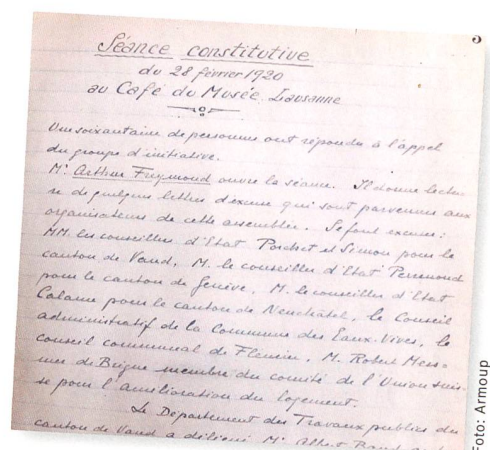 5
Séance constitutive
du 28 février 1920
au Café du Musée Lausanne
Une soixantaine de personnes ont répondu à l'appel
du groupe d'initiative.
Mr Arthur Freymond ouvre la séance. Il donne lectu-
re de quelques lettres d'excuse qui sont parvenues aux
organisateurs de cette assemblée. Se font excuser:
MM. les conseillers d'Etat Porchet et Simon pour le
canton de Vaud, M. le conseiller d'Etat Perrenoud
pour le canton de Genève, M. le conseiller d'Etat
Calame pour le canton de Neuchâtel, le Conseil
administratif de la Commune des Eaux-Vives, le
conseil communal de Fleurier, M. Robert
de Brigue membre du comité de l'Union suis-
se pour l'amélioration du logement.
Le Département des Travaux publics du
canton de Vaud a délégué Mr Albert
Foto: Armoup